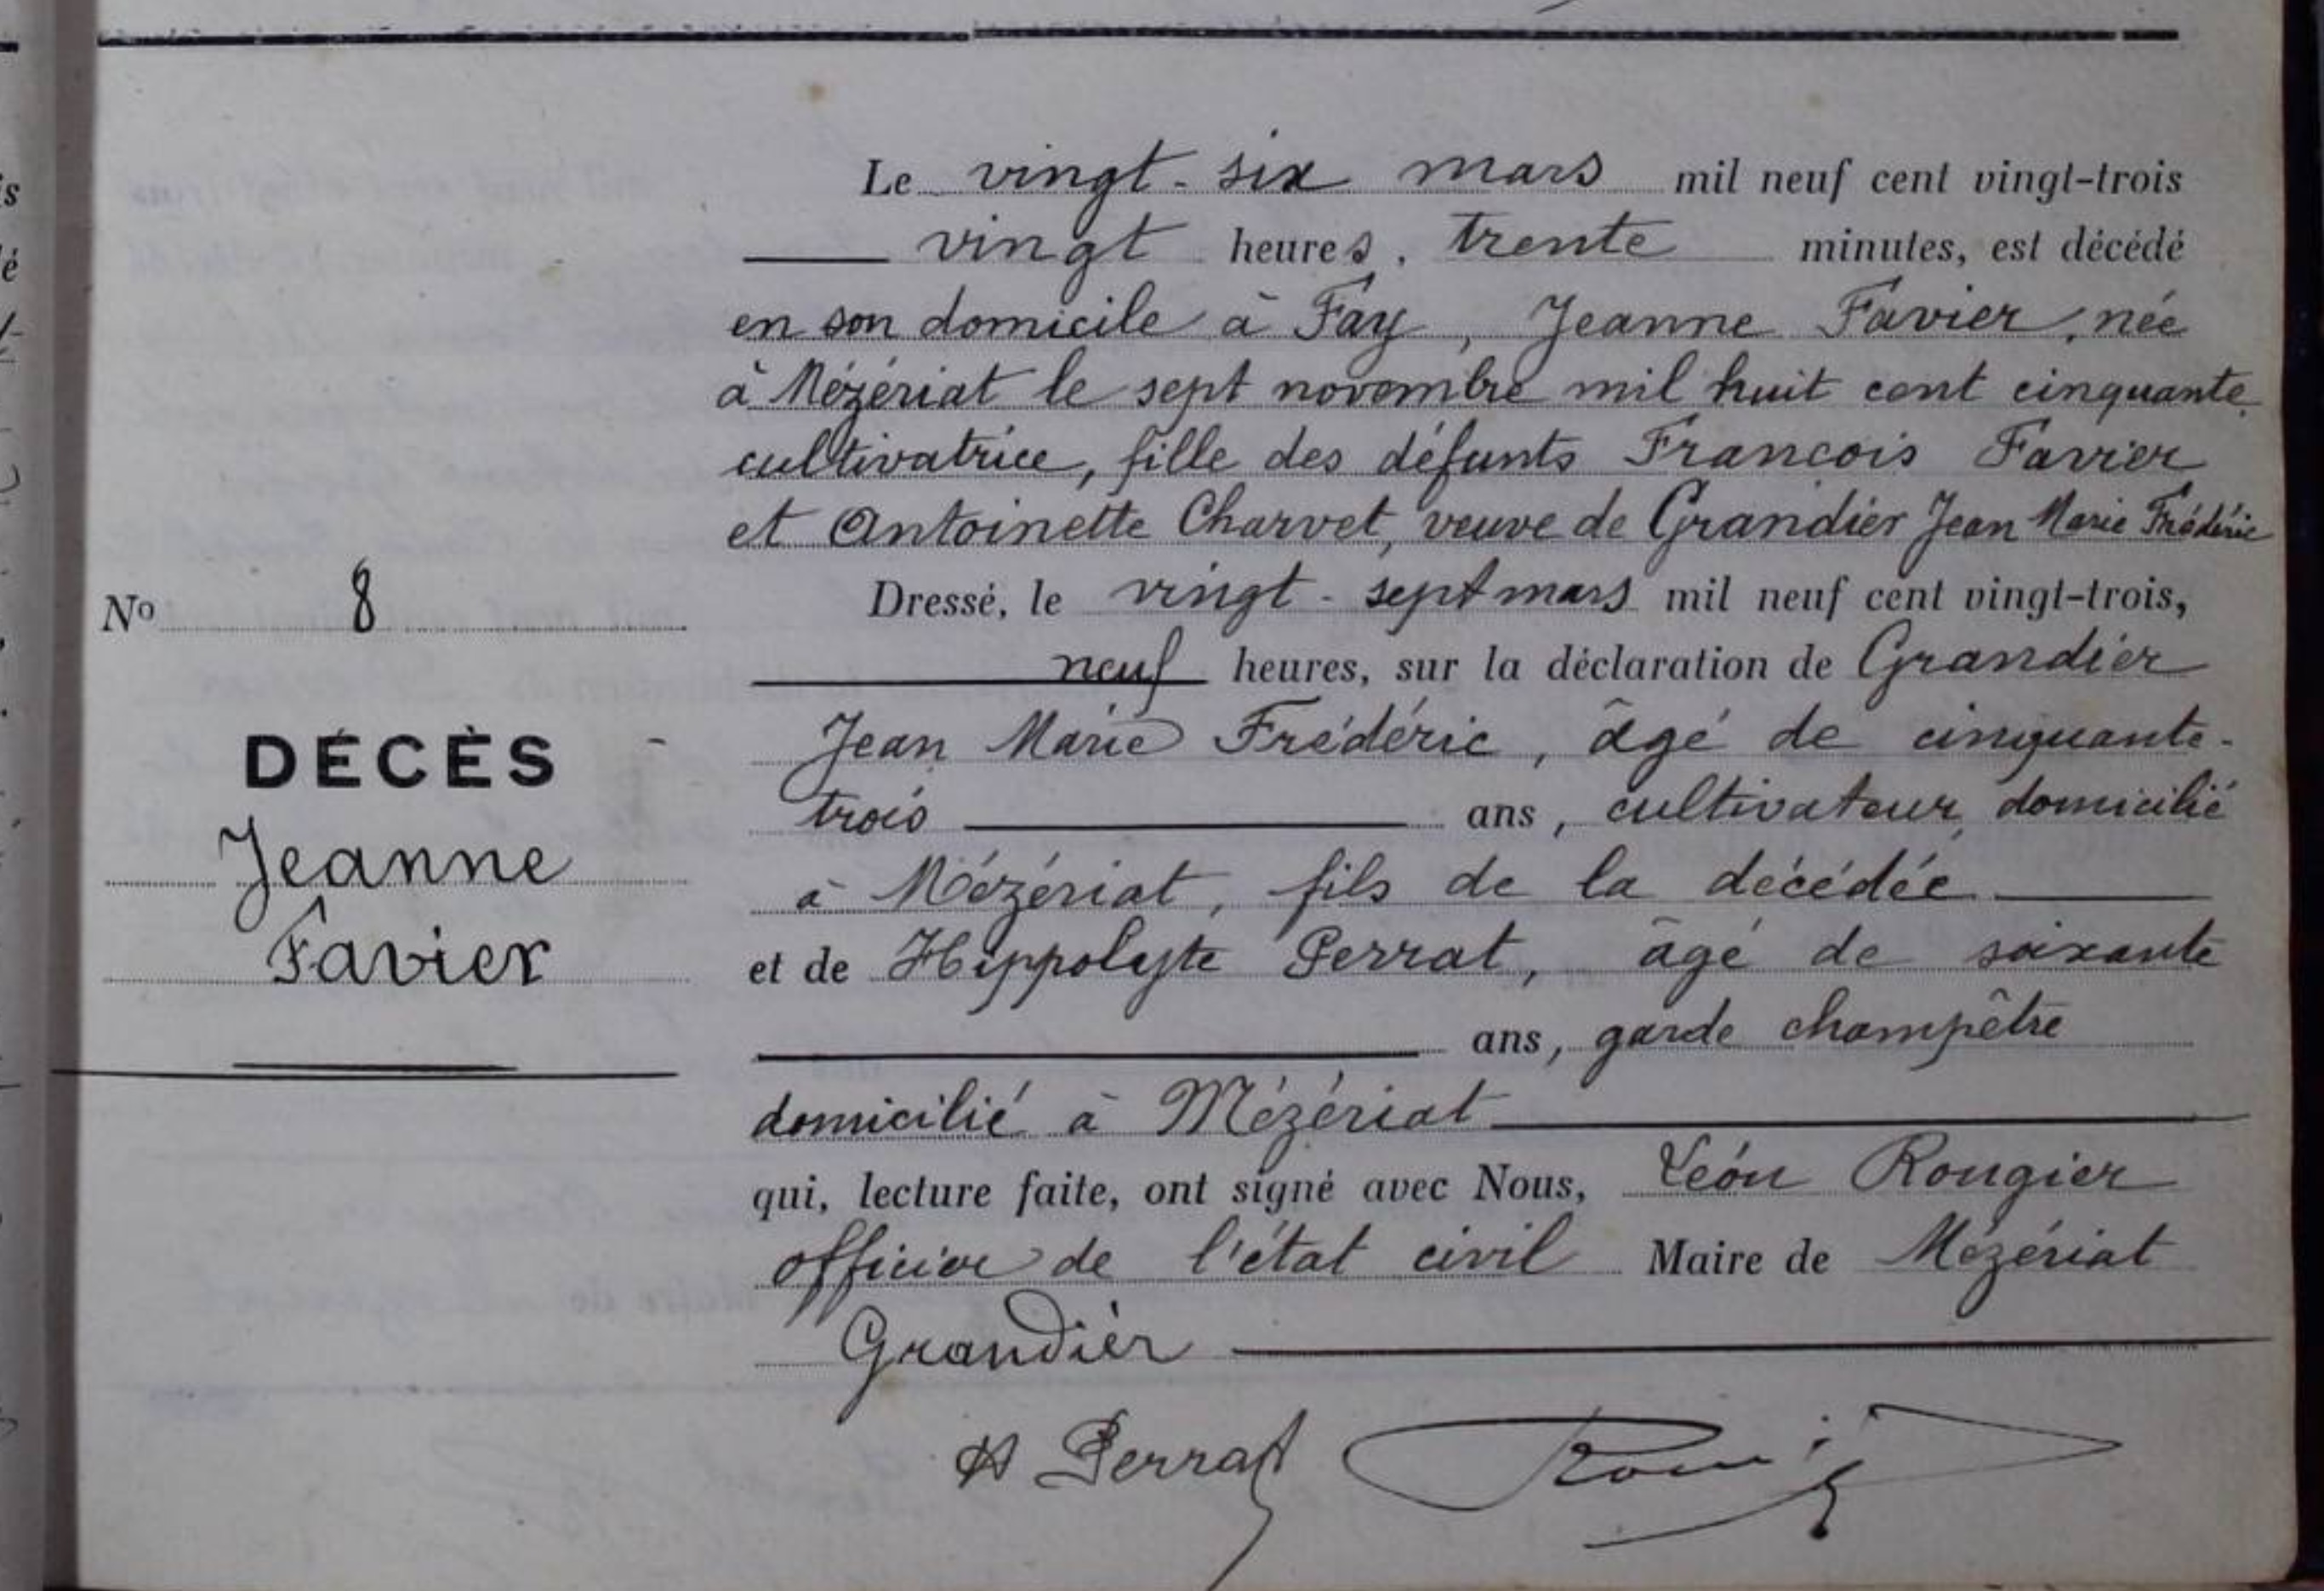 Le vingt-six mars mil neuf cent vingt-trois
vingt heures, trente minutes, est décédé
en son domicile à Fay, Jeanne Favier, née
à Mézériat le sept novembre mil huit cent cinquante
cultivatrice, fille des défunts Francois Favier
et Antoinette Charvet, veuve de Grandier Jean Marie Frédéric
Dressé, le vingt-sept mars mil neuf cent vingt-trois,
neuf heures, sur la déclaration de Grandier
Jean Marie Frédéric, âgé de cinquante-
trois ans, cultivateur, domicilié
à Mézériat, fils de la décédée
et de Hippolyte Perrat, âgé de soixante
ans, garde champêtre
domicilié à Mézériat
qui, lecture faite, ont signé avec Nous, Léon Rougier
officier de l'état civil Maire de Mézériat
Grandier
H Perrat
No 8
DÉCÈS
Jeanne
Favier